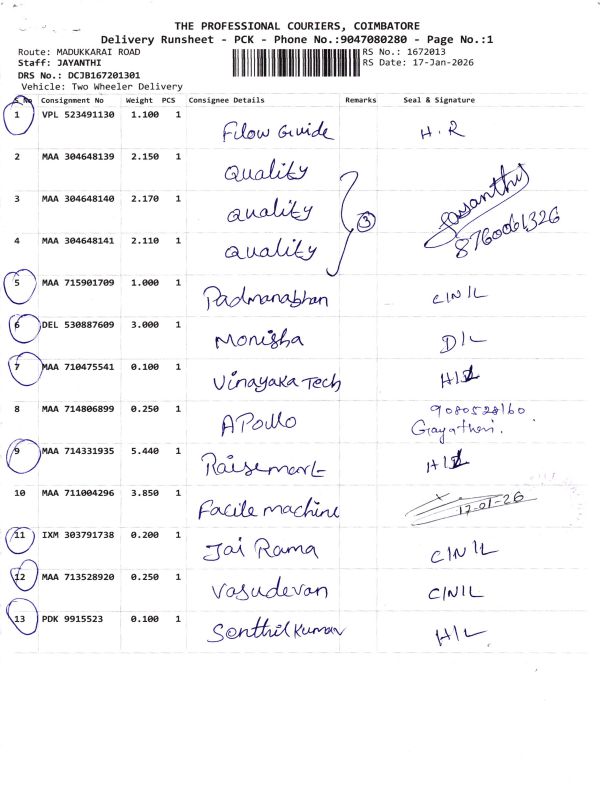 THE PROFESSIONAL COURIERS, COIMBATORE
Delivery Runsheet - PCK - Phone No.:9047080280 - Page No.:1
Route: MADUKKARAI ROAD RS No.: 1672013
Staff: JAYANTHI RS Date: 17-Jan-2026
DRS No.: DCJB167201301
Vehicle: Two Wheeler Delivery
S.No Consignment No Weight PCS Consignee Details Remarks Seal & Signature
1 VPL 523491130 1.100 1 Filow Guide H.R
2 MAA 304648139 2.150 1 Quality
3 MAA 304648140 2.170 1 Quality 3
4 MAA 304648141 2.110 1 Quality 8760061326
5 MAA 715901709 1.000 1 Padmanabhan CINIL
6 DEL 530887609 3.000 1 Monisha DIL
7 MAA 710475541 0.100 1 Vinayaka Tech
8 MAA 714806899 0.250 1 APollo 9080528160
Gayatheri.
9 MAA 714331935 5.440 1 Raisemart
10 MAA 711004296 3.850 1 Facile machine 17-01-26
11 IXM 303791738 0.200 1 Jai Rama CINIL
12 MAA 713528920 0.250 1 Vasudevan CINIL
13 PDK 9915523 0.100 1 Senthil Kumar HIL